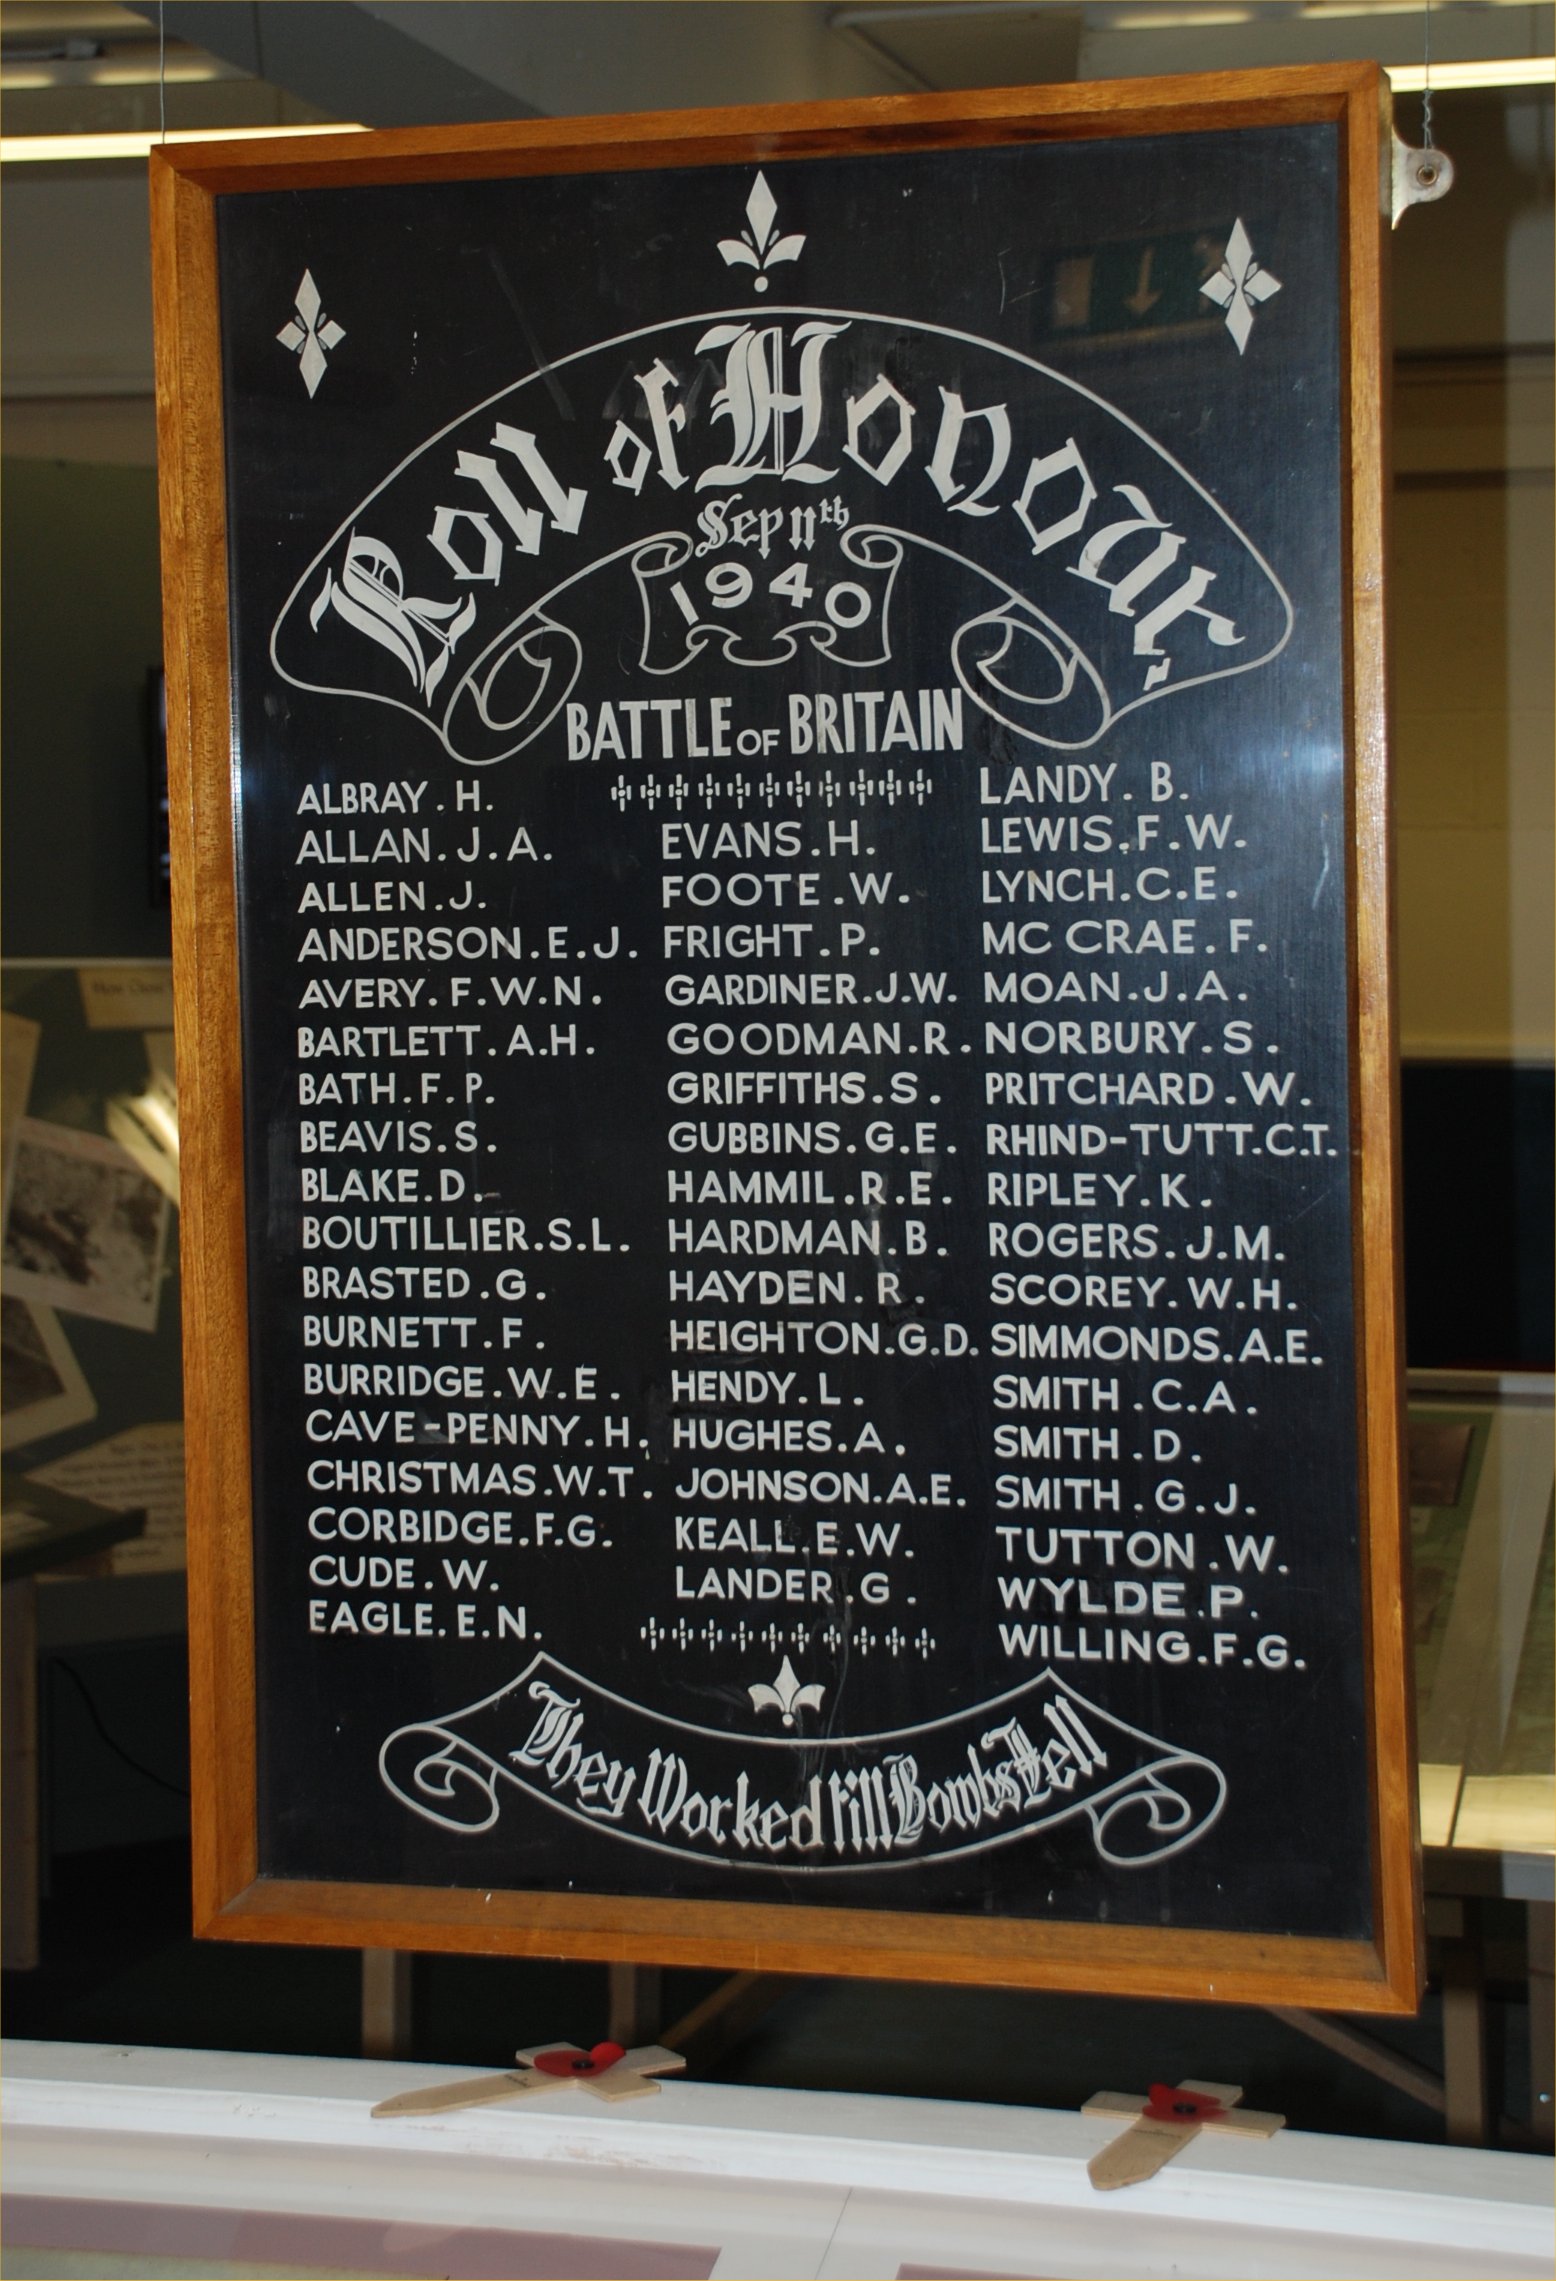 Roll of Honour.
Sep 11th
1940
BATTLE OF BRITAIN
ALBRAY . H.
ALLAN . J . A .
ALLEN . J.
ANDERSON . E . J .
AVERY . F . W . N .
BARTLETT . A.H.
BATH . F . P.
BEAVIS . S .
BLAKE . D .
BOUTILLIER . S . L .
BRASTED . G .
BURNETT . F .
BURRIDGE . W . E .
CAVE-PENNY . H .
CHRISTMAS . W . T .
CORBIDGE . F . G .
CUDE . W .
EAGLE . E . N .
EVANS . H .
FOOTE . W .
FRIGHT . P.
GARDINER . J . W .
GOODMAN . R .
GRIFFITHS . S .
GUBBINS . G . E .
HAMMIL . R . E .
HARDMAN . B .
HAYDEN . R .
HEIGHTON . G . D .
HENDY . L .
HUGHES . A .
JOHNSON . A . E .
KEALL . E . W .
LANDER . G .
LANDY . B .
LEWIS . F . W .
LYNCH . C . E .
MC CRAE . F .
MOAN . J . A .
NORBURY . S .
PRITCHARD . W .
RHIND-TUTT . C.T.
RIPLEY . K .
ROGERS . J . M .
SCOREY . W . H .
SIMMONDS . A . E .
SMITH . C . A .
SMITH . D .
SMITH . G . J .
TUTTON . W .
WYLDE . P .
WILLING . F . G .
They Worked till Bombs Fell